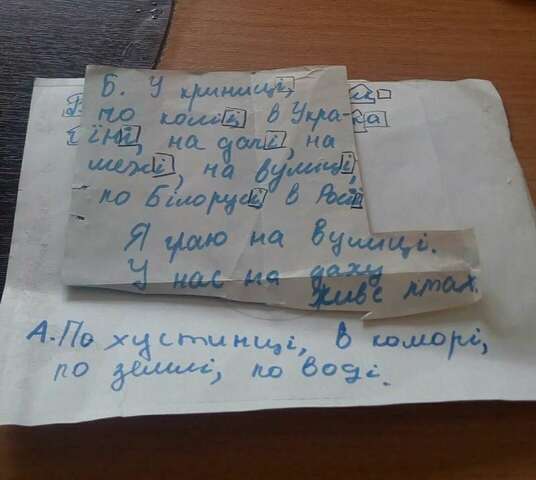 Б. У криниці,
по колії в Укра-
їні, на дачі, на
межі, на вулиці,
по Білорусі в Росії
Я граю на вулиці.
У нас на даху
живе птах.
А. По хустинці, в коморі,
по землі, по воді.